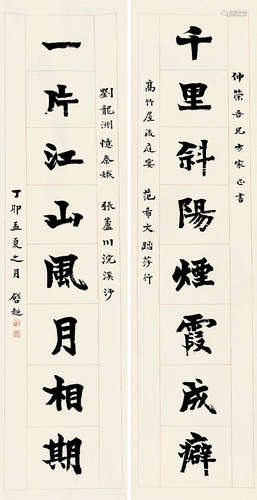 仲榮吾兄方家正書
千里斜陽煙霞成癖
高竹屋後庭宴 范希文踏莎行
劉龍洲憶秦娥 張蘆川浣溪沙
一片江山風月相期
丁卯孟夏之月 啓超